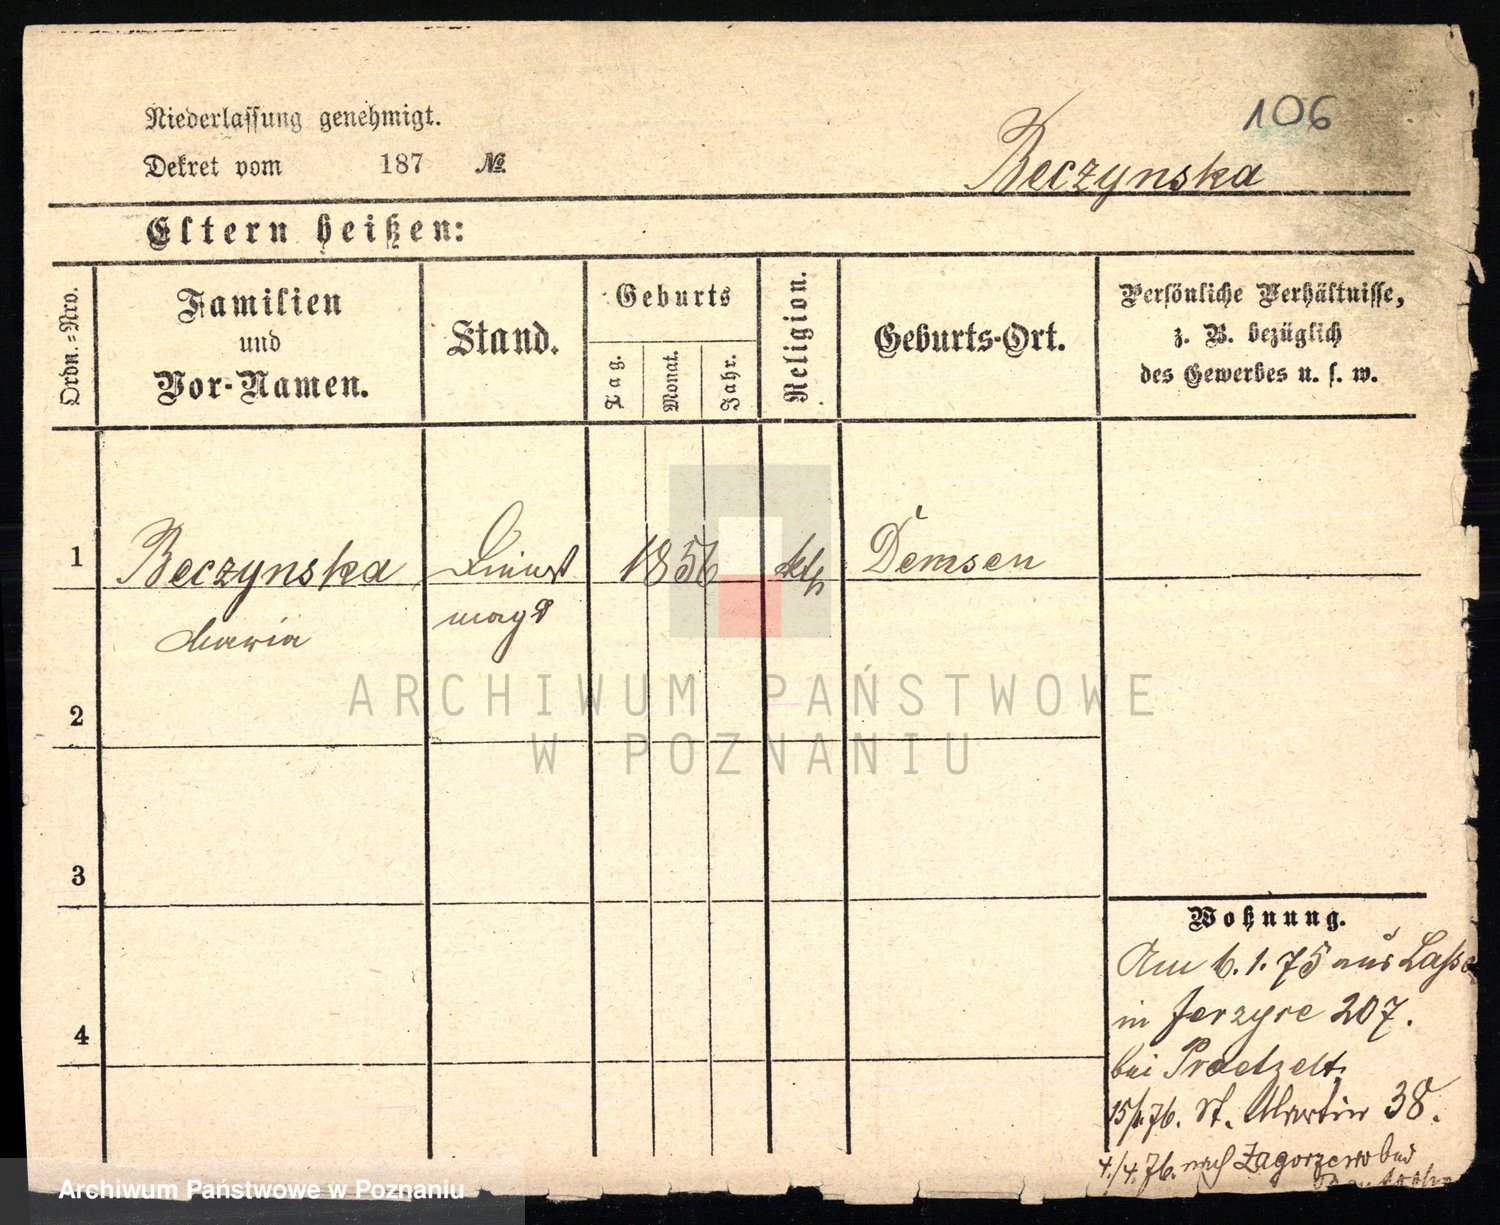 106
Niederlassung genehmigt.
Dekret vom 187 №
Beczynska
Eltern heißen:
Ordn.=Nro.
Familien
und
Vor-Namen.
Stand.
Geburts
Tag.
Monat.
Jahr.
Religion.
Geburts-Ort.
Persönliche Verhältnisse,
z. B. bezüglich
des Gewerbes u. s. w.
1
Beczynska
Maria
Dienst
magd
1856
kth
Demsen
2
3
4
Wohnung.
Am 6.1.75 aus Lasse
in Jerzyce 207.
bei Praetzelt
15/1.76. St. Martin 38.
4./4.76. nach Zagorzewo bei
ARCHIWUM PAŃSTWOWE
W POZNANIU
Archiwum Państwowe w Poznaniu